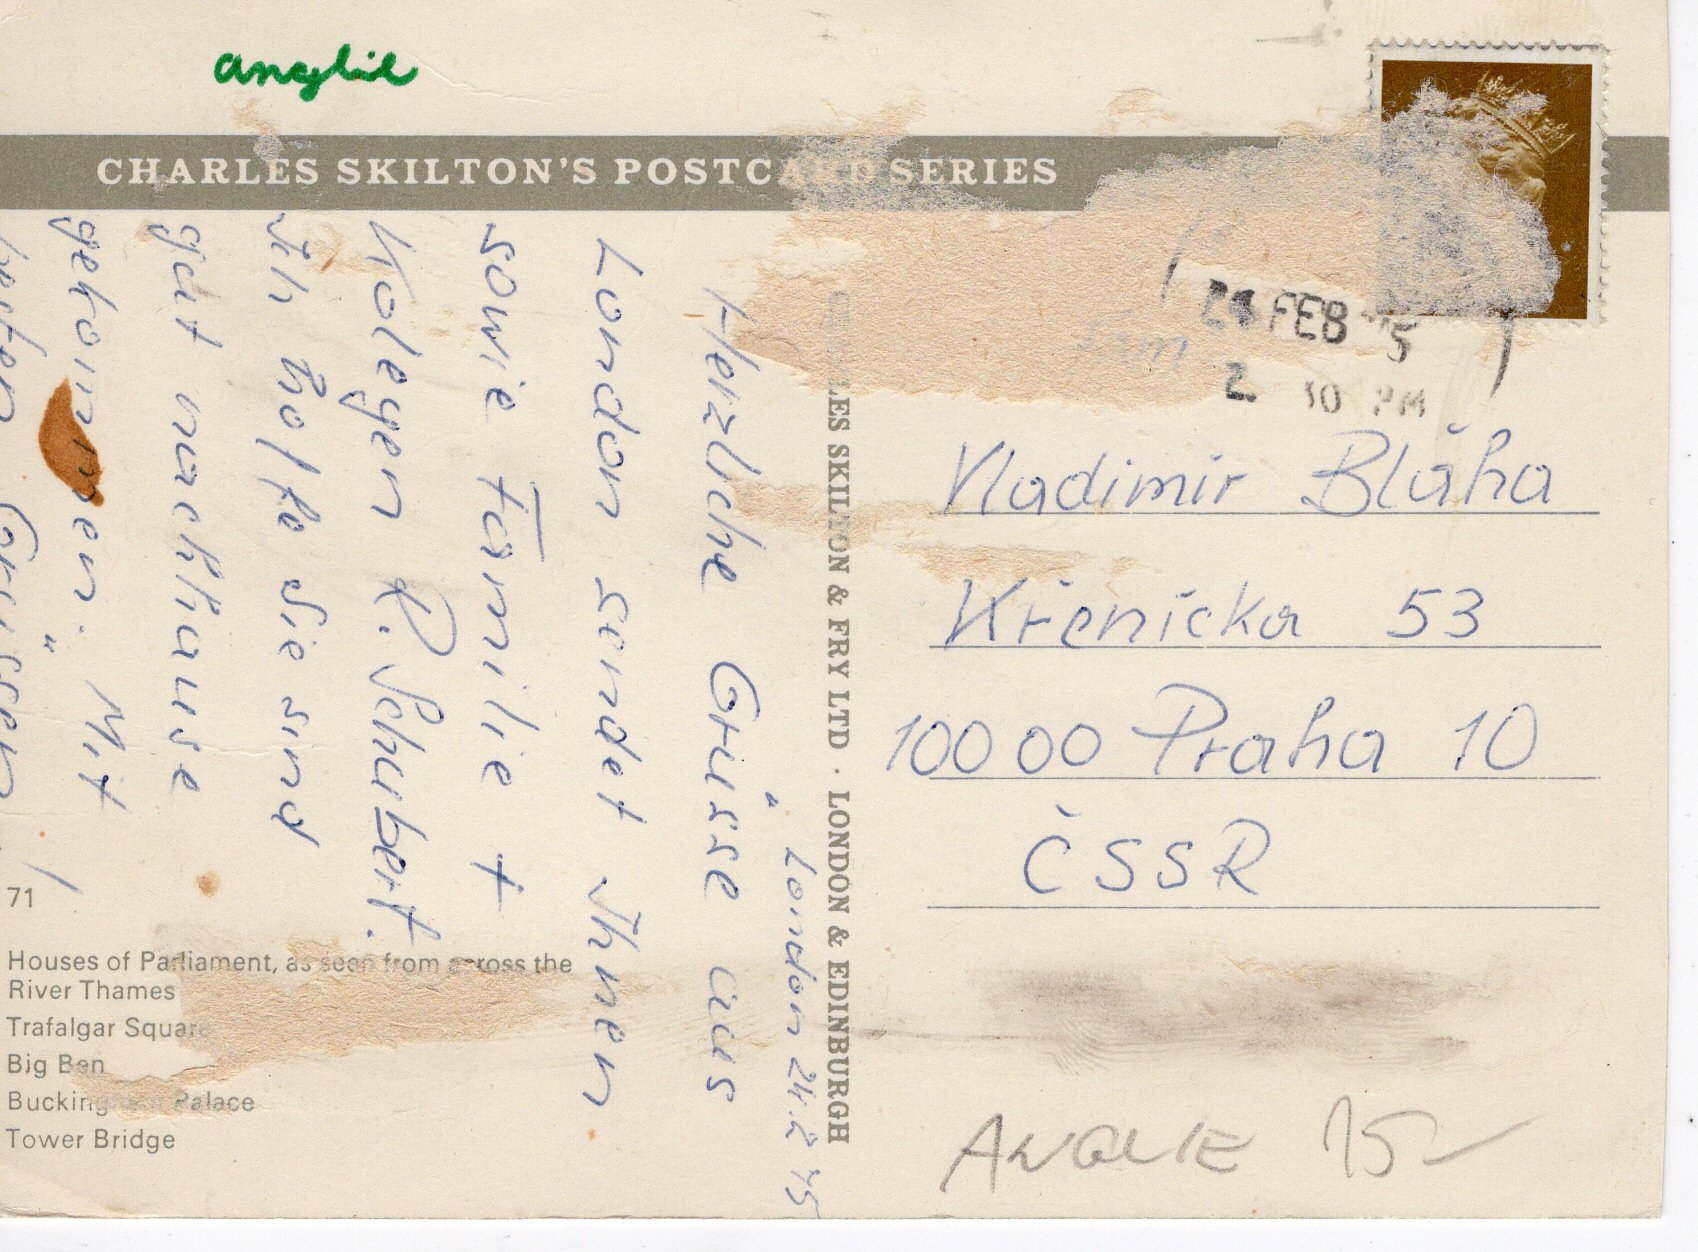 anglie
CHARLES SKILTON'S POSTCARD SERIES
24 FEB 75
2 30 PM
London 24.2 75
Herzliche Grüsse aus
London sendet Ihnen
sowie Familie +
Kolegen R. Schubert.
Ich hoffe Sie sind
gut nachhause
gekommen. Mit
besten Grüssen
CHARLES SKILTON & FRY LTD · LONDON & EDINBURGH
Vladimir Bláha
Křenicka 53
100 00 Praha 10
ČSSR
71
Houses of Parliament, as seen from across the
River Thames
Trafalgar Square
Big Ben
Buckingham Palace
Tower Bridge
ANGLIE 15-